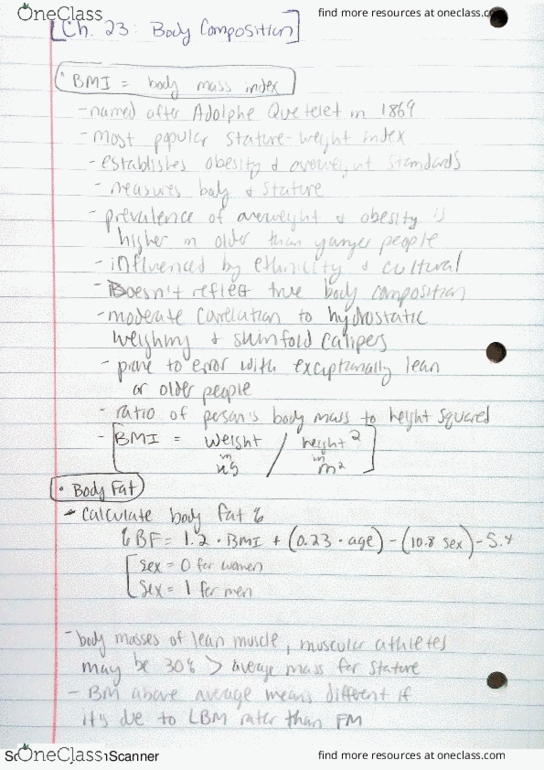 OneClass
find more resources at oneclass.com
[Ch. 23: Body Composition]
• BMI = body mass index
- named after Adolphe Quetelet in 1869
- most popular stature-weight index
- establishes obesity & overweight standards
- measures body & stature
- prevalence of overweight & obesity is
higher in older than younger people
- influenced by ethnicity & cultural
- Doesn't reflect true body composition
- moderate correlation to hydrostatic
weighing & skinfold calipers
- prone to error with exceptionally lean
or older people
- ratio of person's body mass to height squared
- [BMI = weight in kg / height² in m²]
• Body Fat
- Calculate body fat %
% BF = 1.2 · BMI + (0.23 · age) - (10.8 sex) - 5.4
[sex = 0 for women
sex = 1 for men
- body masses of lean muscle, muscular athletes
may be 30% > average mass for stature
- BM above average means different if
it's due to LBM rather than FM
OneClass
Scanner
find more resources at oneclass.com